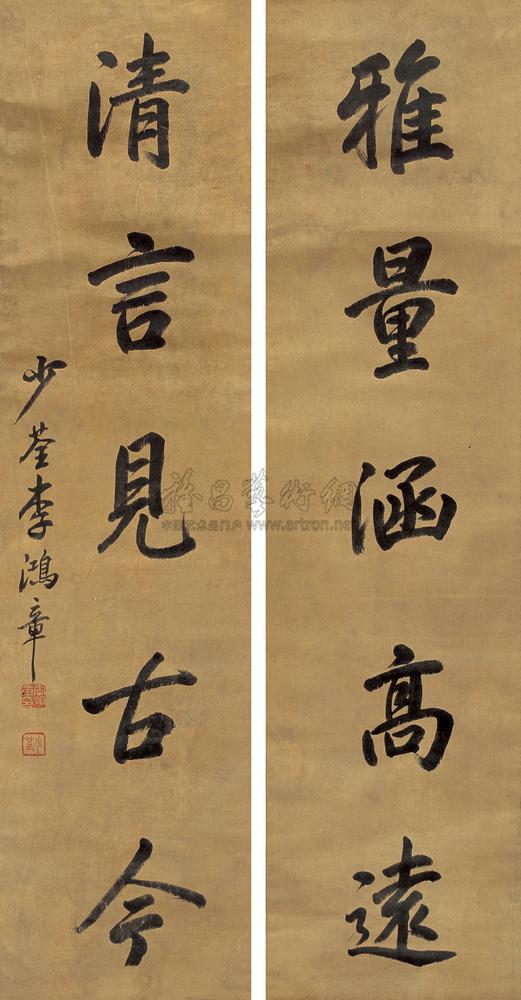 雅量涵高遠
清言見古今
少荃李鴻章
雅昌藝術網
中国艺术品门户 www.artron.net